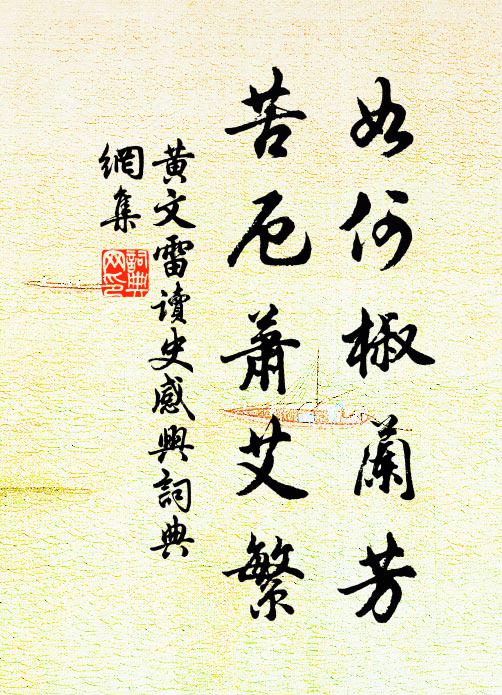 如何椒蘭芳
苦厄蕭艾繁
黃文雷讀史感興詞典
網集
詞典
网印